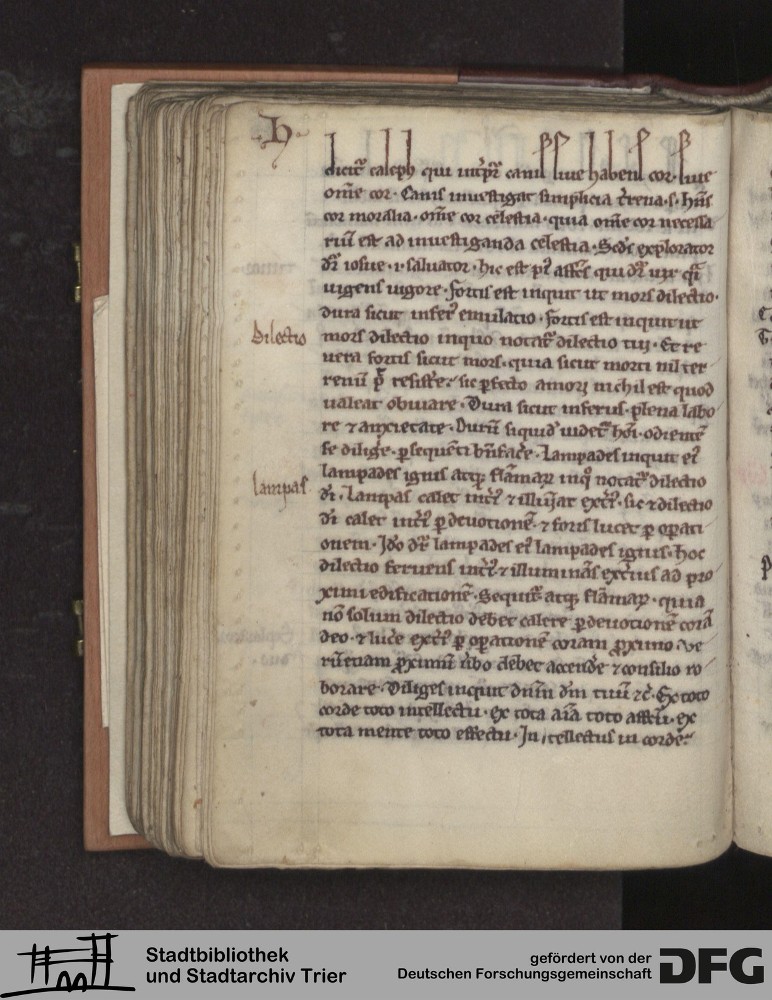 ·h·
dicit᷑ caleph qui int̾p̃r̃ canis siue habens cor· siue
om̃e cor· Canis inuestigat simplicia t̾rena· s· hñs
cor moralia· om̃e cor celestia· quia om̃e cor necessa
riū est ad inuestiganda celestia· Scd̾s explorator
dr̃ iosue· i· saluator· hic est
uigens uigore· fortis est inquit ut mors dilectio·
dura sicut infer᷒ emulatio· fortis est inquit ut
Dilectio
mors dilectio inquo notat᷑ dilectio tui· Et re
uera fortis sicut mors· quia sicut morti nil ter
renū p̃t resist̾e· sic p̱fecto amori nichil est quod
ualeat obuiare· Dura sicut inferus· plena labo
re ⁊ anxietate· Durū siquid̾ uidet᷑ hōi· odientē
se dilig̾e· p̱sequēti bñfac̾e· Lampades inquit ei᷒
lampas
lampades ignis atq; flāmarꝝ inq̊ notat᷑ dilectio
dī· Lampas calet int̾i᷒ ⁊ illuīat ext̾i᷒· sic ⁊ dilectio
dī calet int̾i᷒ p̱ deuotionē· ⁊ foris lucet p̱ operati
onem· Iđo dr̃ lampades ei᷒ lampades ignis· hoc
dilectio feruens int̾i᷒ ⁊ illuminās ext̾ius ad pro
ximi edificationē· Sequit᷑ atq; flāmarꝝ· quia
nō solum dilectio debet calere p̱ deuotionē corā
deo· ⁊ luc̾e ext̾i᷒ p̱ operationē coram proximo· Ve
rū etiam proximū ūbo debet accend̾e ⁊ consilio ro
borare· Diliges inquit dn̄m dm̄ tuū ⁊c̃· Ex toto
corde toto intellectu· ex tota aīa toto affectu· ex
tota mente toto effectu· In,tellectus in corde·
Stadtbibliothek
und Stadtarchiv Trier
gefördert von der
Deutschen Forschungsgemeinschaft
DFG